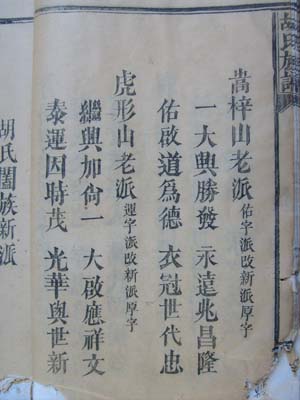 胡氏族譜
嵩梓山老派 佑字派改新派厚字
一大興勝發 永遠兆昌隆
佑啟道爲德 衣冠世代忠
虎形山老派 運字派改新派厚字
繼興加尙一 大啟應祥文
泰運因時茂 光華與世新
胡氏闔族新派